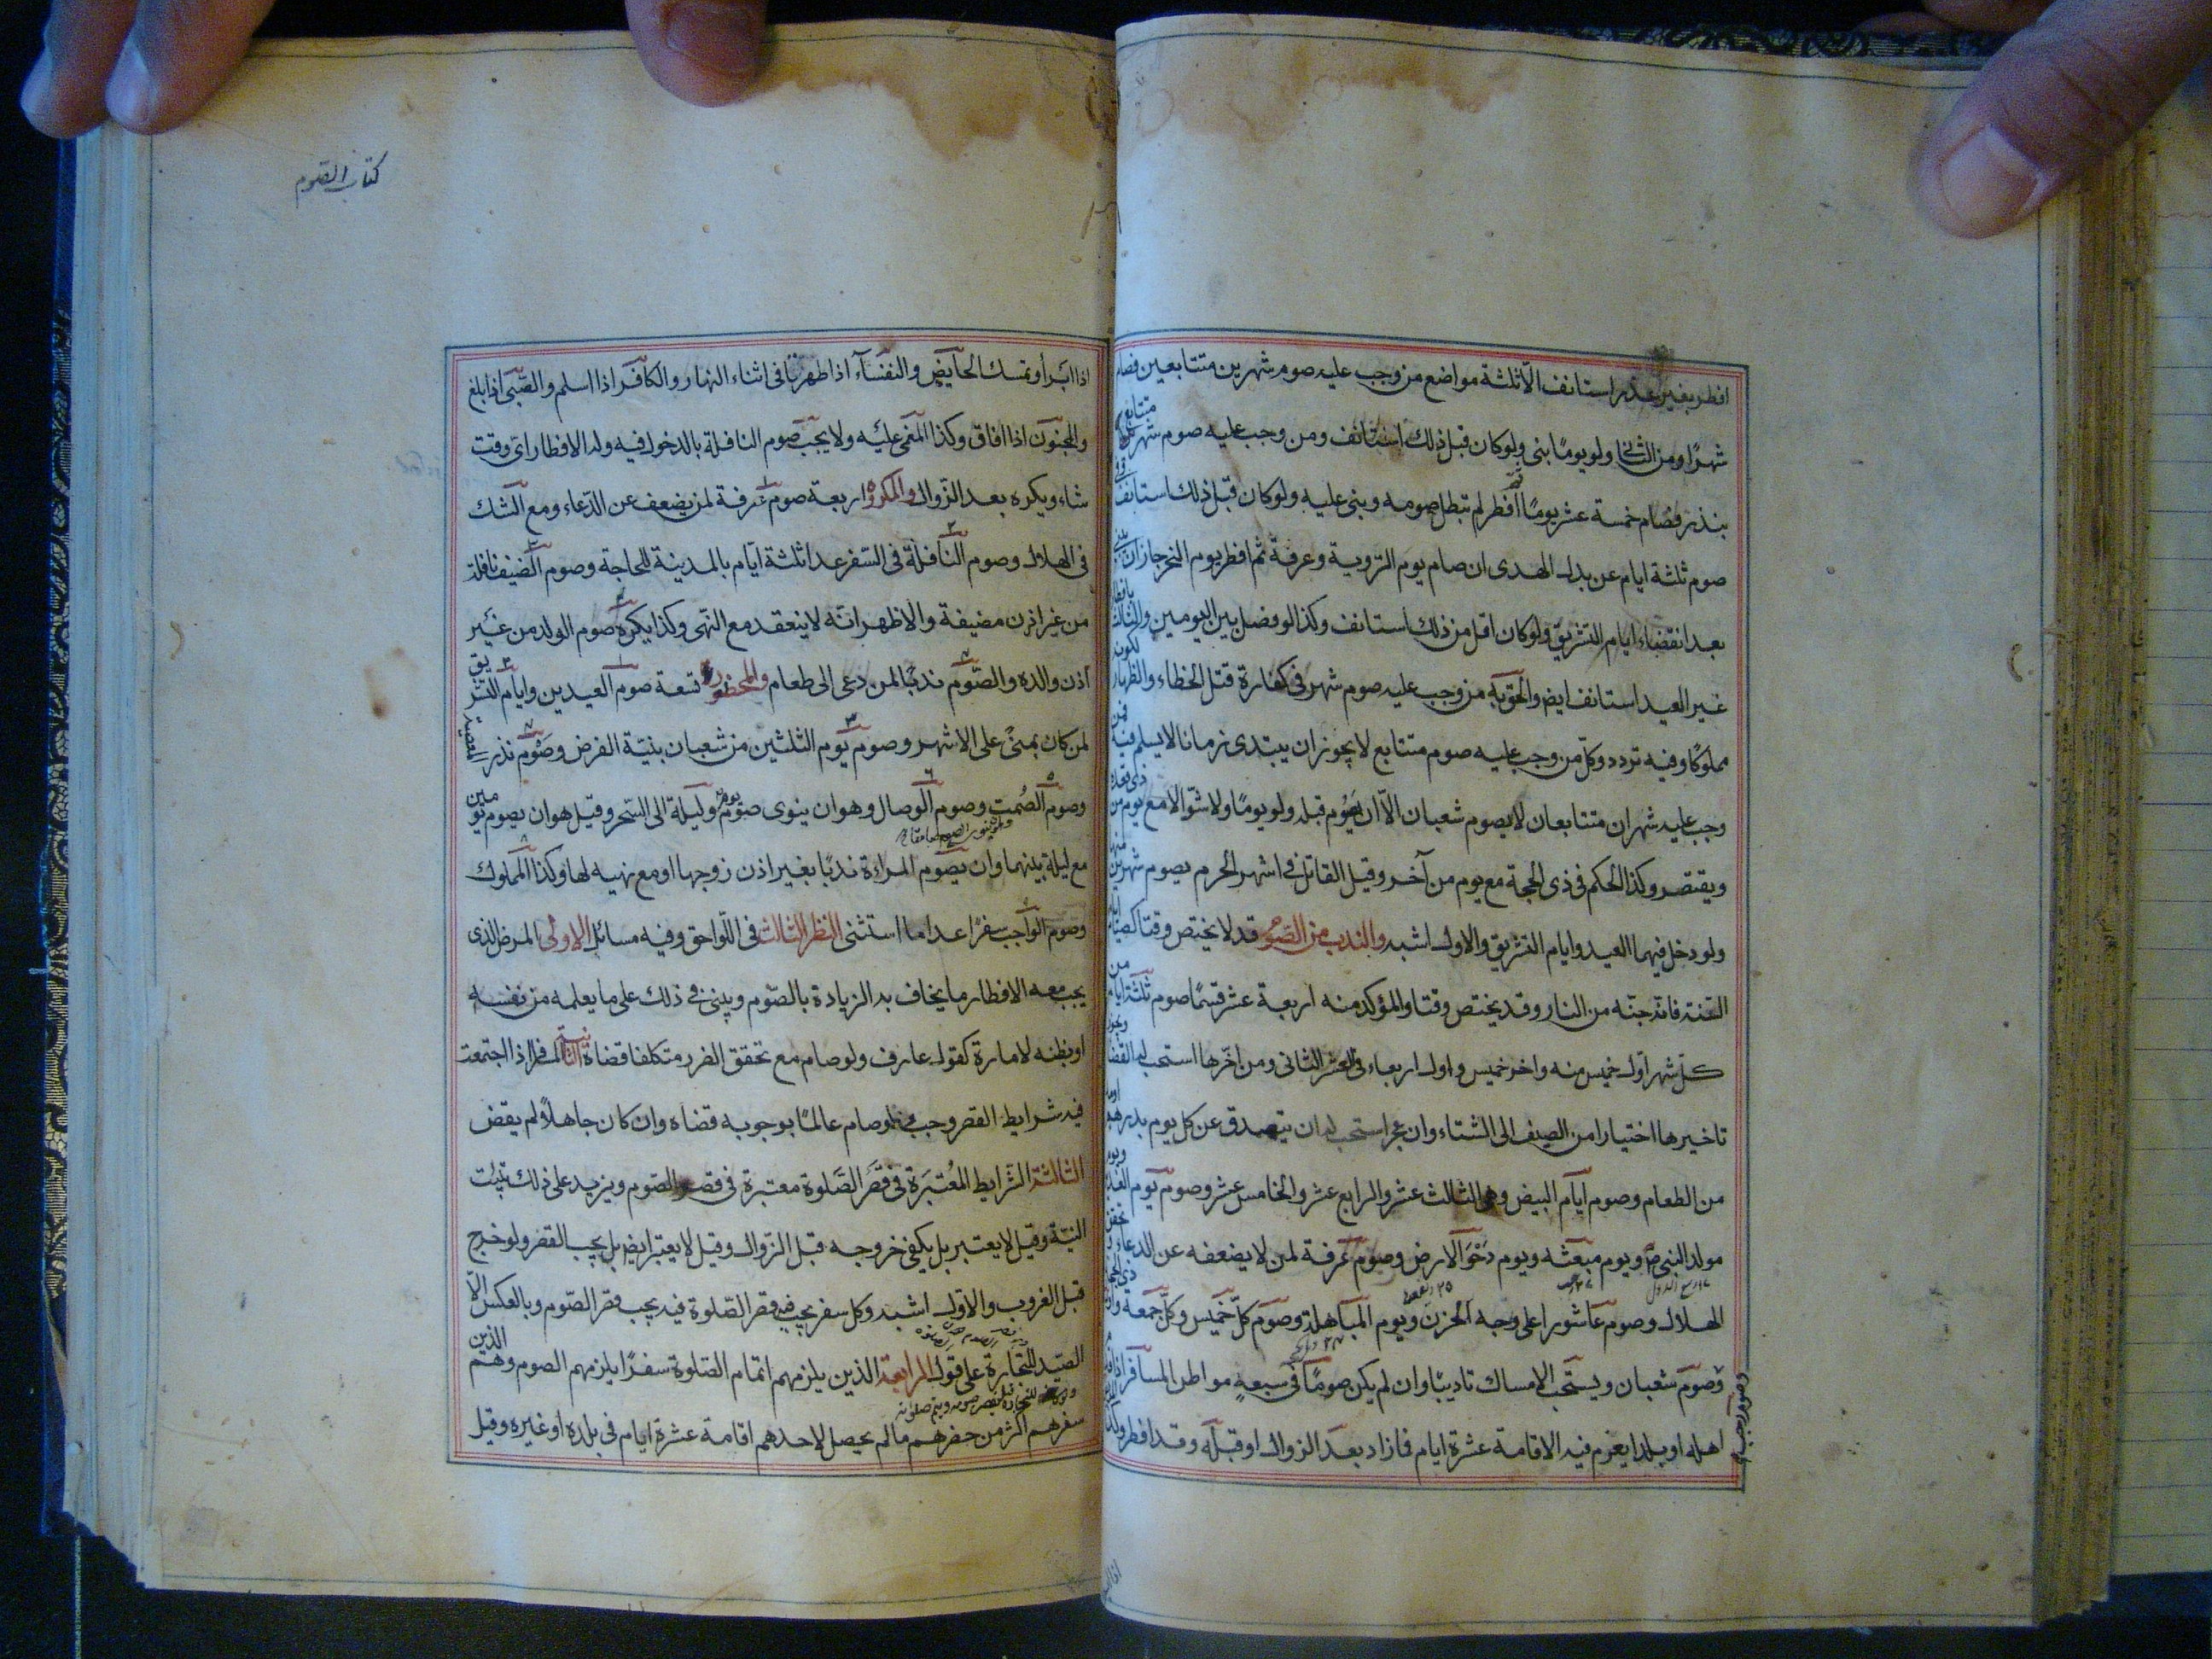 افطر بغير عذر استانف الا ثلثة مواضع من وجب عليه صوم شهرين متتابعين فصام
شهرا ومن الثانى ولو يوما بنى ولو كان قبل ذلك استانف ومن وجب عليه صوم شهر متتابع
بنذر فصام خمسة عشر يوما ثم افطر لم تبطل صومه وبنى عليه ولو كان قبل ذلك استانف وفى
صوم ثلثة ايام عن بدل الهدى ان صام يوم التروية وعرفة ثم افطر يوم النحر جاز ان يبنى
بعد انقضاء ايام التشريق ولو كان اقل من ذلك استانف وكذا لو فصل بين اليومين والثالث بافطار
غير العيد استانف ايض والحق به من وجب عليه صوم شهر فى كفارة قتل الخطاء والظهار لكونه
مملوكا وفيه تردد وكل من وجب عليه صوم متتابع لا يجوز ان يبتدى زمانا لا يسلم فيه فمن
وجب عليه شهران متتابعان لا يصوم شعبان الا ان يصوم قبله ولو يوما ولا شوالا مع يوم من ذى قعدة
ويقتصر وكذا الحكم فى ذى الحجة مع يوم من آخر وقيل القاتل فى اشهر الحرم يصوم شهرين منها
ولو دخل فيهما العيد وايام التشريق والاول اشبه والندب من الصوم قد لا يختص وقتا كصيام ايام
السنة فانه جنة من النار وقد يختص وقتا والمؤكد منه اربعة عشر قسما صوم ثلثة ايام من
كل شهر اول خميس منه واخر خميس واول اربعاء فى العشر الثانى ومن اخرها استحب له القضا ويجوز
تاخيرها اختيارا من الصيف الى الشتاء وان عجز استحب له ان يتصدق عن كل يوم بدرهم او مد
من الطعام وصوم ايام البيض وهى الثالث عشر والرابع عشر والخامس عشر وصوم يوم الغدير ويوم
مولد النبى ص ويوم مبعثه ويوم دحو الارض وصوم عرفة لمن لا يضعفه عن الدعاء وتحقق
الهلال وصوم عاشورا على وجه الحزن ويوم المباهلة وصوم كل خميس وكل جمعة واول ذى الحجة
وصوم رجب
وصوم شعبان ويستحب الامساك تاديبا وان لم يكن صوما فى سبعة مواطن المسافر اذا قدم
اهله او بلدا يعزم فيه الاقامة عشرة ايام فما زاد بعد الزوال او قبله وقد افطر وكذا
كتاب الصوم
اذا ابرأ وتمسك الحايض والنفسآء اذا طهرتا فى اثناء النهار والكافر اذا اسلم والصبى اذا بلغ
والمجنون اذا افاق وكذا المغمى عليه ولا يجب صوم النافلة بالدخول فيه وله الافطار اى وقت
شاء ويكره بعد الزوال والمكروه اربعة صوم عرفة لمن يضعف عن الدعاء ومع الشك
فى الهلال وصوم النافلة فى السفر عدا ثلثة ايام بالمدينة للحاجة وصوم الضيف نافلة
من غير اذن مضيفة والاظهر انه لا ينعقد مع النهى وكذا يكره صوم الولد من غير
اذن والده والصوم ندبا لمن دعى الى طعام والمحظور تسعة صوم العيدين وايام التشريق
لمن كان بمنى على الاشهر وصوم يوم الثلثين من شعبان بنية الفرض وصوم نذر المعصية
وصوم الصمت وصوم الوصال وهو ان ينوى صوم يوم وليلة الى السحر وقيل هو ان يصوم يومين
مع ليلة بينهما وان يصوم المراءة ندبا بغير اذن زوجها او مع نهيه لها وكذا المملوك
وصوم الواجب سفرا عدا ما استثنى النظر الثالث فى اللواحق وفيه مسائل الاولى المرض الذى
يجب معه الافطار ما يخاف به الزيادة بالصوم ويبنى فى ذلك على ما يعلمه من نفسه
او يظنه لامارة كقول عارف ولو صام مع تحقق الضرر متكلفا قضاه الثانية المسافر اذا اجتمعت
فيه شرايط القصر وجب ولو صام عالما بوجوبه قضاه وان كان جاهلا لم يقض
الثالثة الشرايط المعتبرة فى قصر الصلوة معتبرة فى قصر الصوم ويزيد على ذلك تبيت
النية وقيل لا يعتبر بل يكفى خروجه قبل الزوال وقيل لا يعتبر ايض بل يجب القصر ولو خرج
قبل الغروب والاول اشبه وكل سفر يجب فيه قصر الصلوة فيه يجب قصر الصوم وبالعكس الا
الصيد للتجارة على قول الرابعة الذين يلزمهم اتمام الصلوة سفرا يلزمهم الصوم وهم الذين
سفرهم اكثر من حضرهم ما لم يحصل لاحدهم اقامة عشرة ايام فى بلده او غيره وقيل